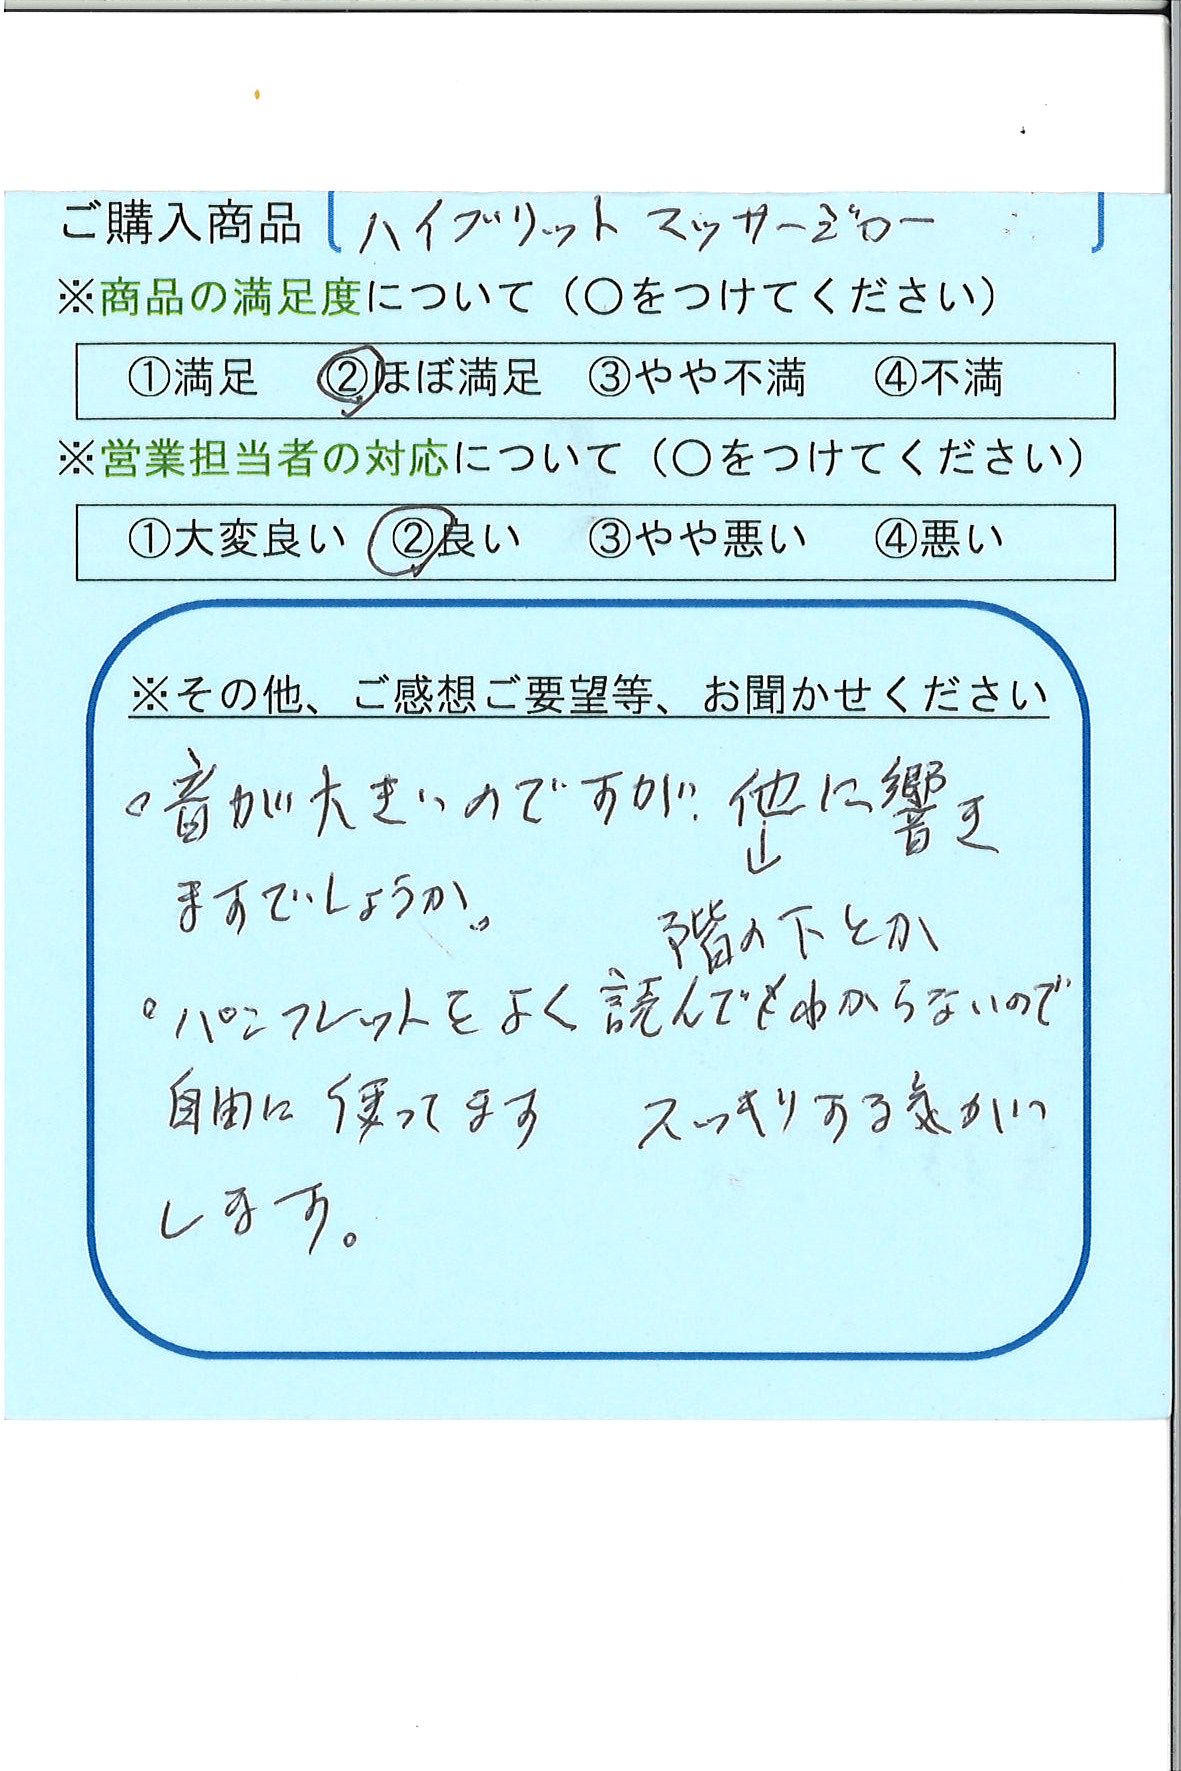 ご購入商品 [ハイブリット マッサージロー]
※商品の満足度について（○をつけてください）
①満足 ②ほぼ満足 ③やや不満 ④不満
※営業担当者の対応について（○をつけてください）
①大変良い ②良い ③やや悪い ④悪い
※その他、ご感想ご要望等、お聞かせください
。音が大きいのですが、他に響き
↓
ますでしょうか。
階の下とか
。パンフレットをよく読んでもわからないので
自由に使ってます スッキリする気がい
します。